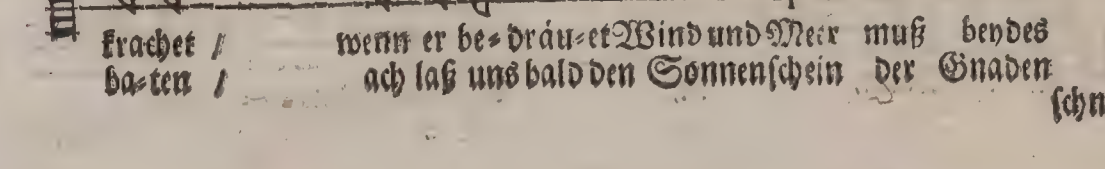 krachet / wenn er be⸗dräu⸗et Wind und Meer muß beydes
ba⸗ten / ach laß uns bald den Sonnenschein der Gnaden
schn